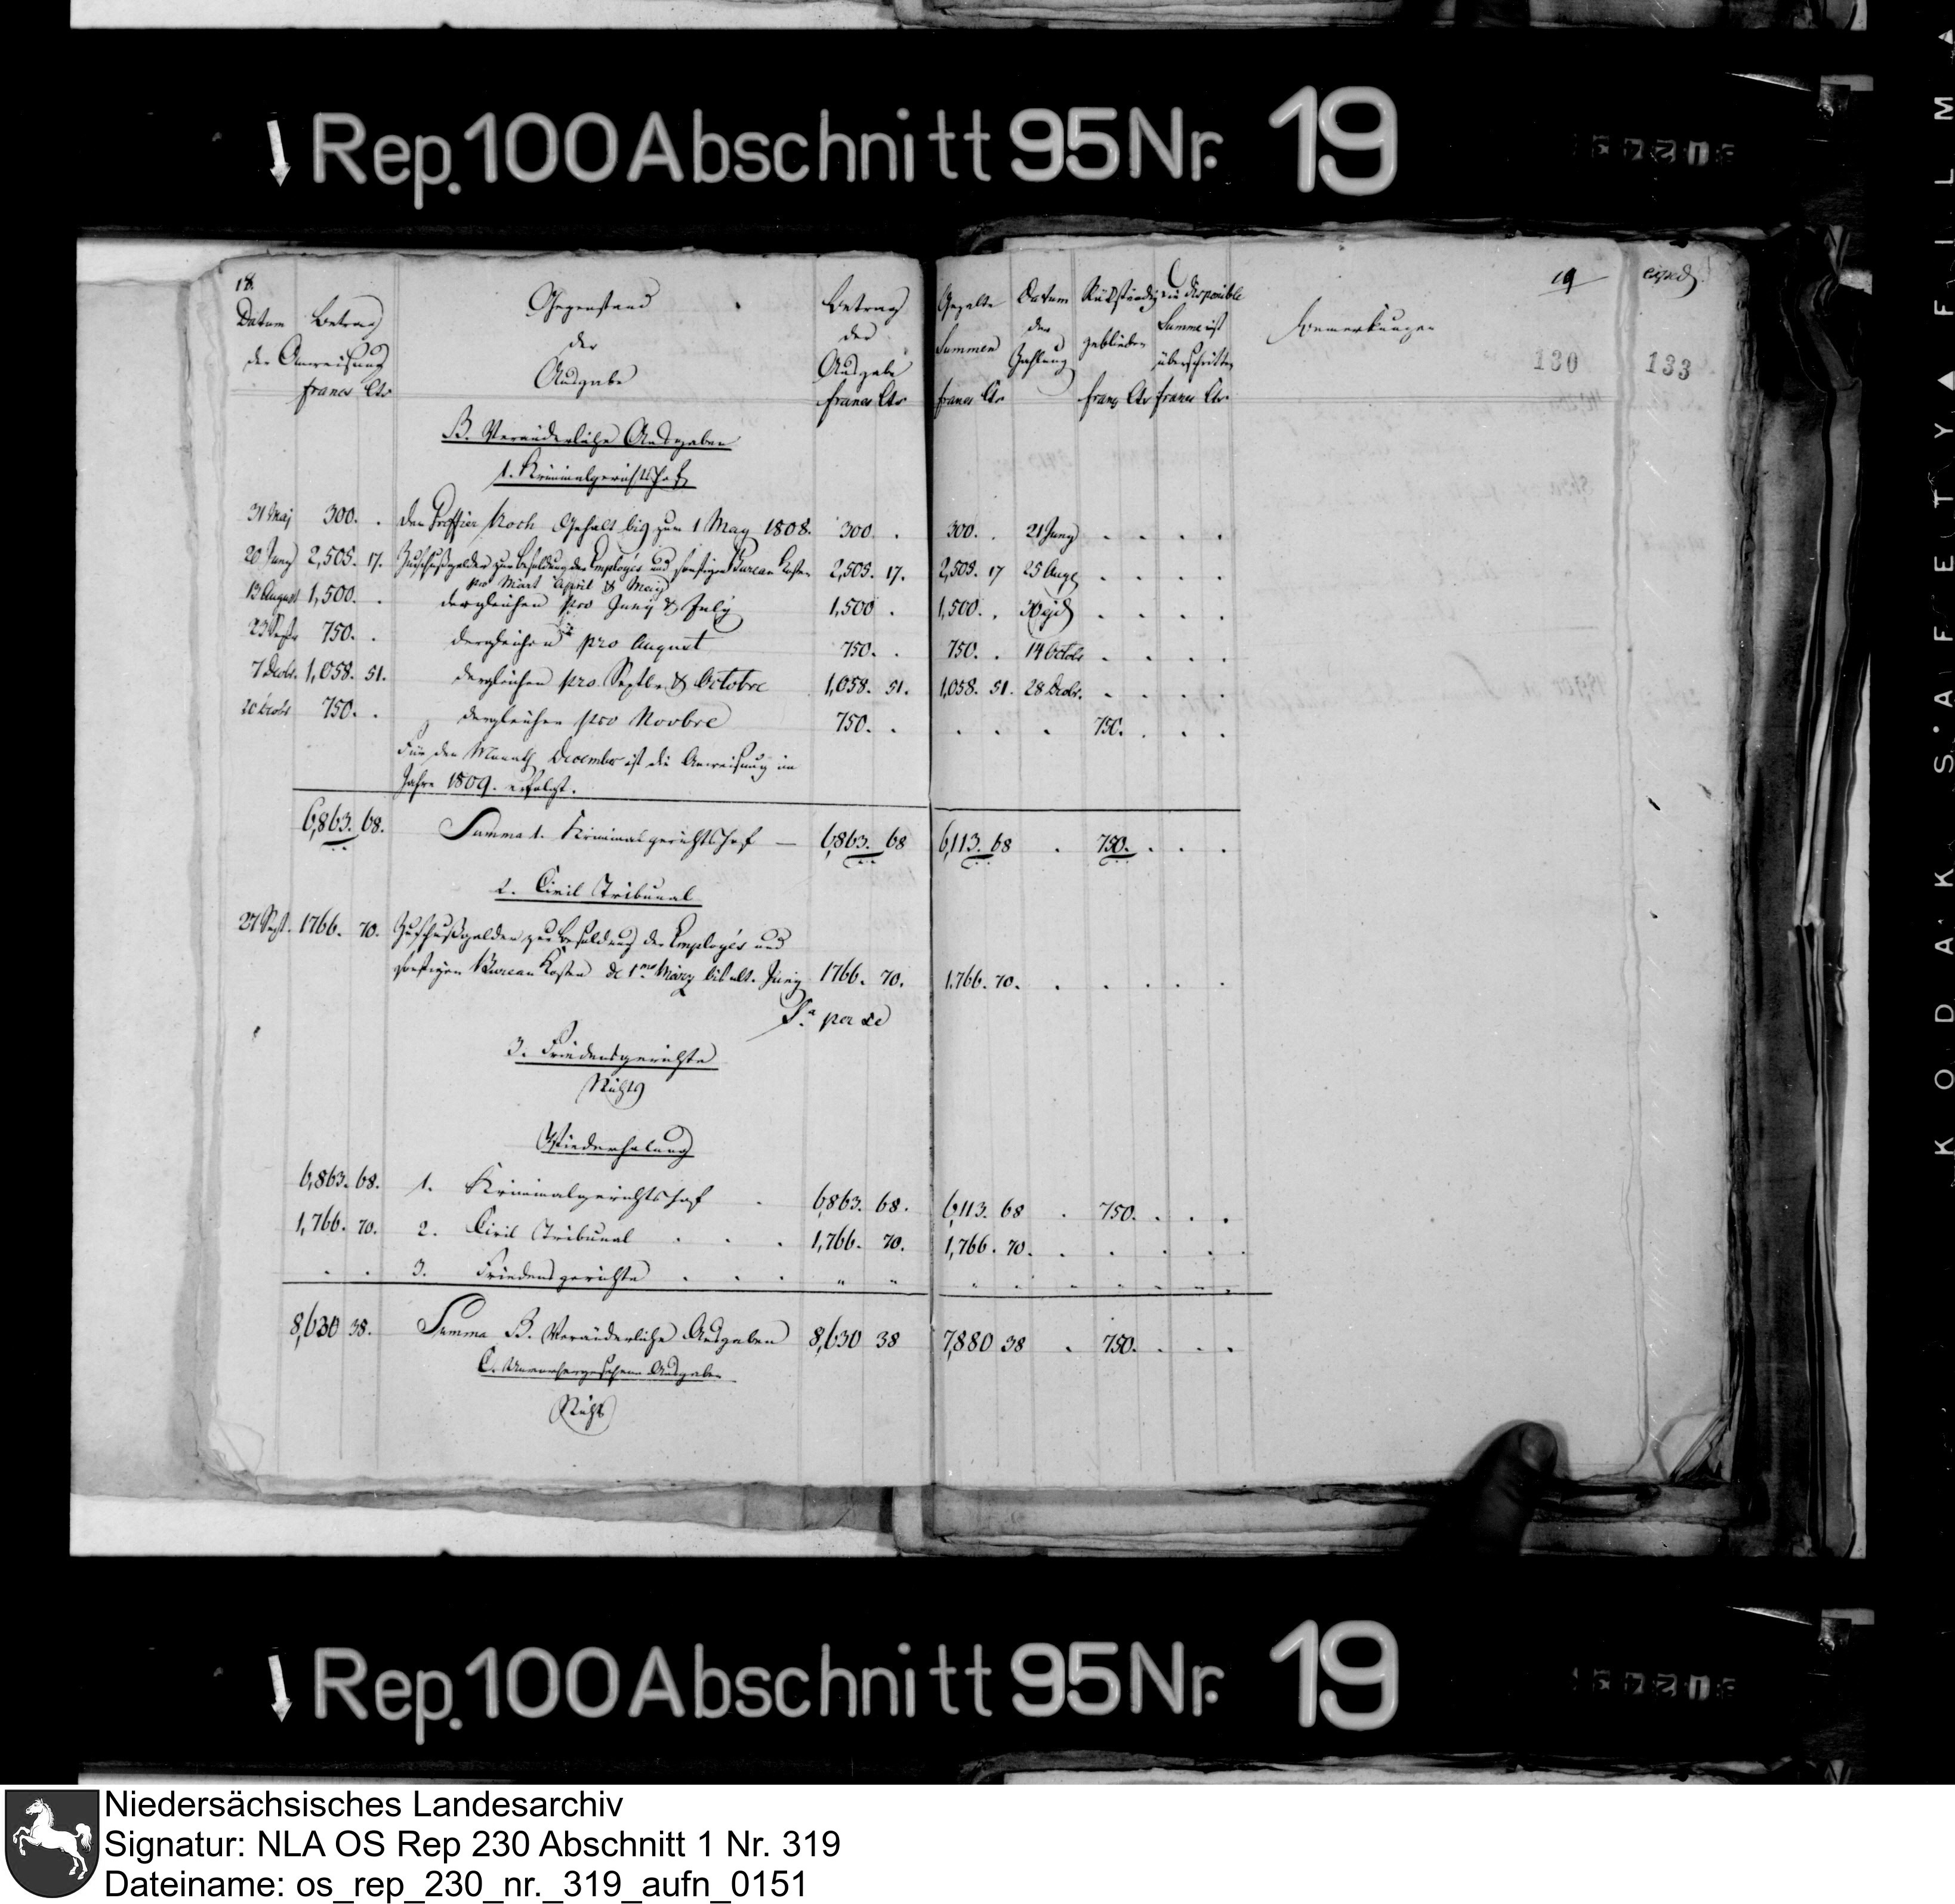 Rep. 100 Abschnitt 95 Nr. 19
18.
Datum Betrag
der Anweisung
francs Cts
Gegenstand
der
Ausgabe
Betrag
der
Ausgabe
francs Cts
Gezalte
Summen
francs Cts
Datum
der
Zahlung
Rükständig
geblieben
francs Cts
die disponible
Summe ist
überschritten
francs Cts
Bemerkungen
19
130
133
B. Veränderliche Ausgaben
1. Kriminalgerichtshof
31 Maj 300. . den Greffier Koch Gehalt bis zum 1 May 1808. 300. . 300. . 21 Juny . . . .
20 Juny 2,505. 17. Zuschußgelder zur Besoldung der Employés und sonstigen Bureau Kosten 2,505. 17. 2,505. 17 25 Aug . . . .
pro Mart April & May
13 August 1,500. . dergleichen pro Juny & July 1,500 . 1,500. . 30 ejd . . . .
23 Septr 750. . dergleichen pro August 750. . 750. . 14 Octobr . . . .
7 Decbr. 1,058. 51. dergleichen pro Septbr & Octobre 1,058. 51. 1,058. 51. 28 Decbr. . . . .
20 Decbr 750. . dergleichen pro Novbre 750. . . . . 750. . . .
Für den Monath December ist die Anweisung im
Jahre 1809. erfolgt.
6,863. 68. Summa 1. Kriminalgerichtshof — 6,863. 68 6,113. 68 . 750. . . .
2. Civil Tribunal
27 Sept. 1766. 70. Zuschußgelder zur Besoldung der Employés und
sonstigen Bureau Kosten de 1mo März bis ult. Juny 1766. 70. 1,766. 70. . . . . .
Sa per se
3. Friedensgerichte
Nichts
Wiederholung
6,863. 68. 1. Kriminalgerichtshof . 6,863. 68. 6,113. 68 . 750. . . .
1,766. 70. 2. Civil Tribunal . . . 1,766. 70. 1,766. 70. . . . . .
. . 3. Friedensgerichte . . . " " . . . . . . .
8,630 38. Summa B. Veränderliche Ausgaben 8,630 38 7,880 38 . 750. . . .
C. Unvorhergesehene Ausgaben
Nichts
Rep. 100 Abschnitt 95 Nr. 19
KODAK SAFETY FILM
Niedersächsisches Landesarchiv
Signatur: NLA OS Rep 230 Abschnitt 1 Nr. 319
Dateiname: os_rep_230_nr._319_aufn_0151